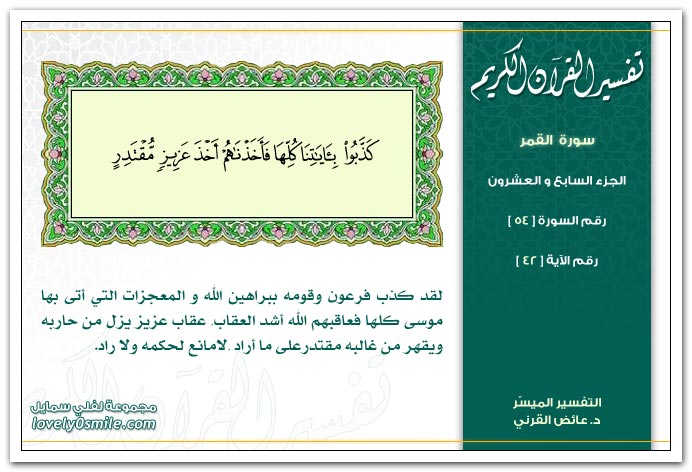 تفسير القرآن الكريم
سورة القمر
الجزء السابع و العشرون
رقم السورة [ ٥٤ ]
رقم الآية [ ٤٢ ]
كَذَّبُوا۟ بِـَٔايَـٰتِنَا كُلِّهَا فَأَخَذْنَـٰهُمْ أَخْذَ عَزِيزٍ مُّقْتَدِرٍ
لقد كذب فرعون وقومه ببراهين الله و المعجزات التي أتى بها
موسى كلها فعاقبهم الله أشد العقاب، عقاب عزيز يزل من حاربه
ويقهر من غالبه مقتدرعلى ما أراد .لامانع لحكمه ولا راد.
التفسير الميسّر
د. عائض القرني
مجموعة لفلي سمايل
lovely0smile.com
تفسير القرآن الكريم